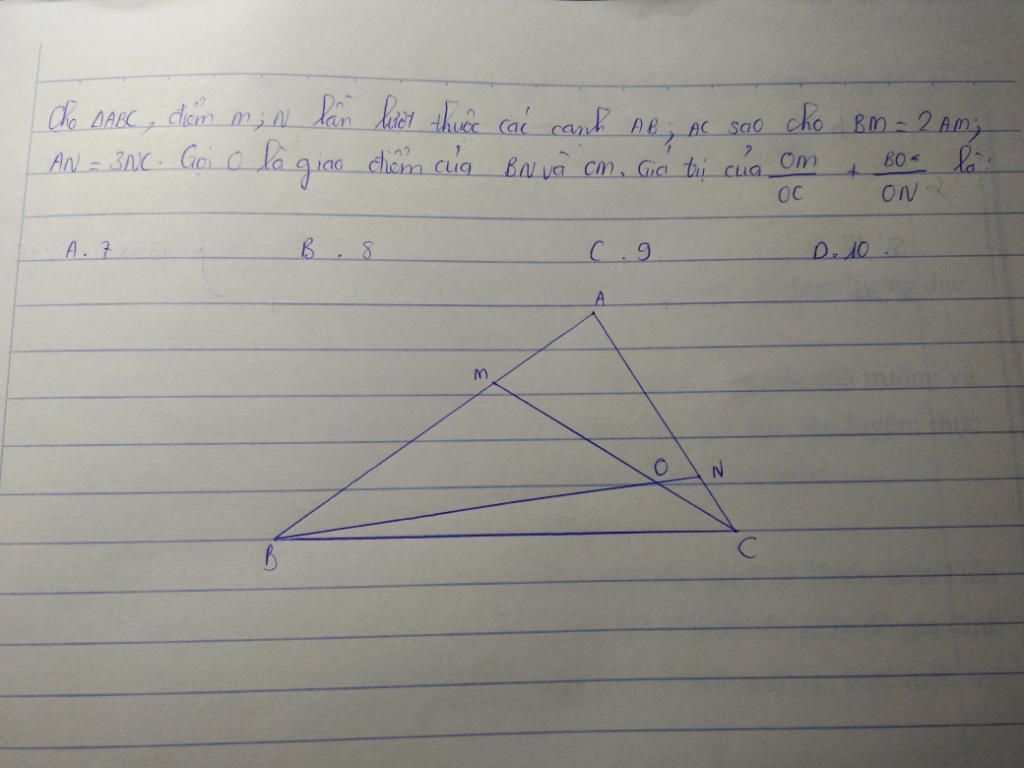 Cho ΔABC, điểm M; N lần lượt thuộc các cạnh AB; AC sao cho BM = 2AM;
AN = 3NC. Gọi O là giao điểm của BN và CM. Giá trị của OM/OC + BO/ON là:
A. 7 B. 8 C. 9 D. 10.
A
M
O N
B C